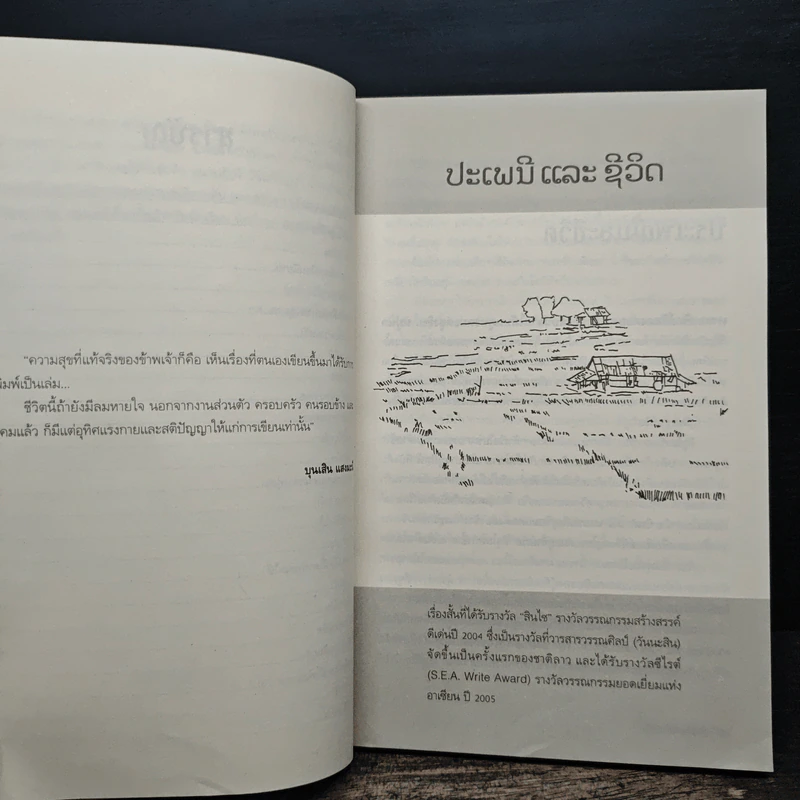 "ความสุขที่แท้จริงของข้าพเจ้าก็คือ เห็นเรื่องที่ตนเองเขียนขึ้นมาได้รับการ
พิมพ์เป็นเล่ม...
ชีวิตนี้ถ้ายังมีลมหายใจ นอกจากงานส่วนตัว ครอบครัว คนรอบข้าง และ
คมแล้ว ก็มีแต่อุทิศแรงกายและสติปัญญาให้แก่การเขียนเท่านั้น"
บุนเสิน
ປະເພນີ ແລະ ຊີວິດ
เรื่องสั้นที่ได้รับรางวัล "สินไซ" รางวัลวรรณกรรมสร้างสรรค์
ดีเด่นปี 2004 ซึ่งเป็นรางวัลที่วารสารวรรณศิลป์ (วันนะสิน)
จัดขึ้นเป็นครั้งแรกของชาติลาว และได้รับรางวัลซีไรต์
(S.E.A. Write Award) รางวัลวรรณกรรมยอดเยี่ยมแห่ง
อาเซียน ปี 2005